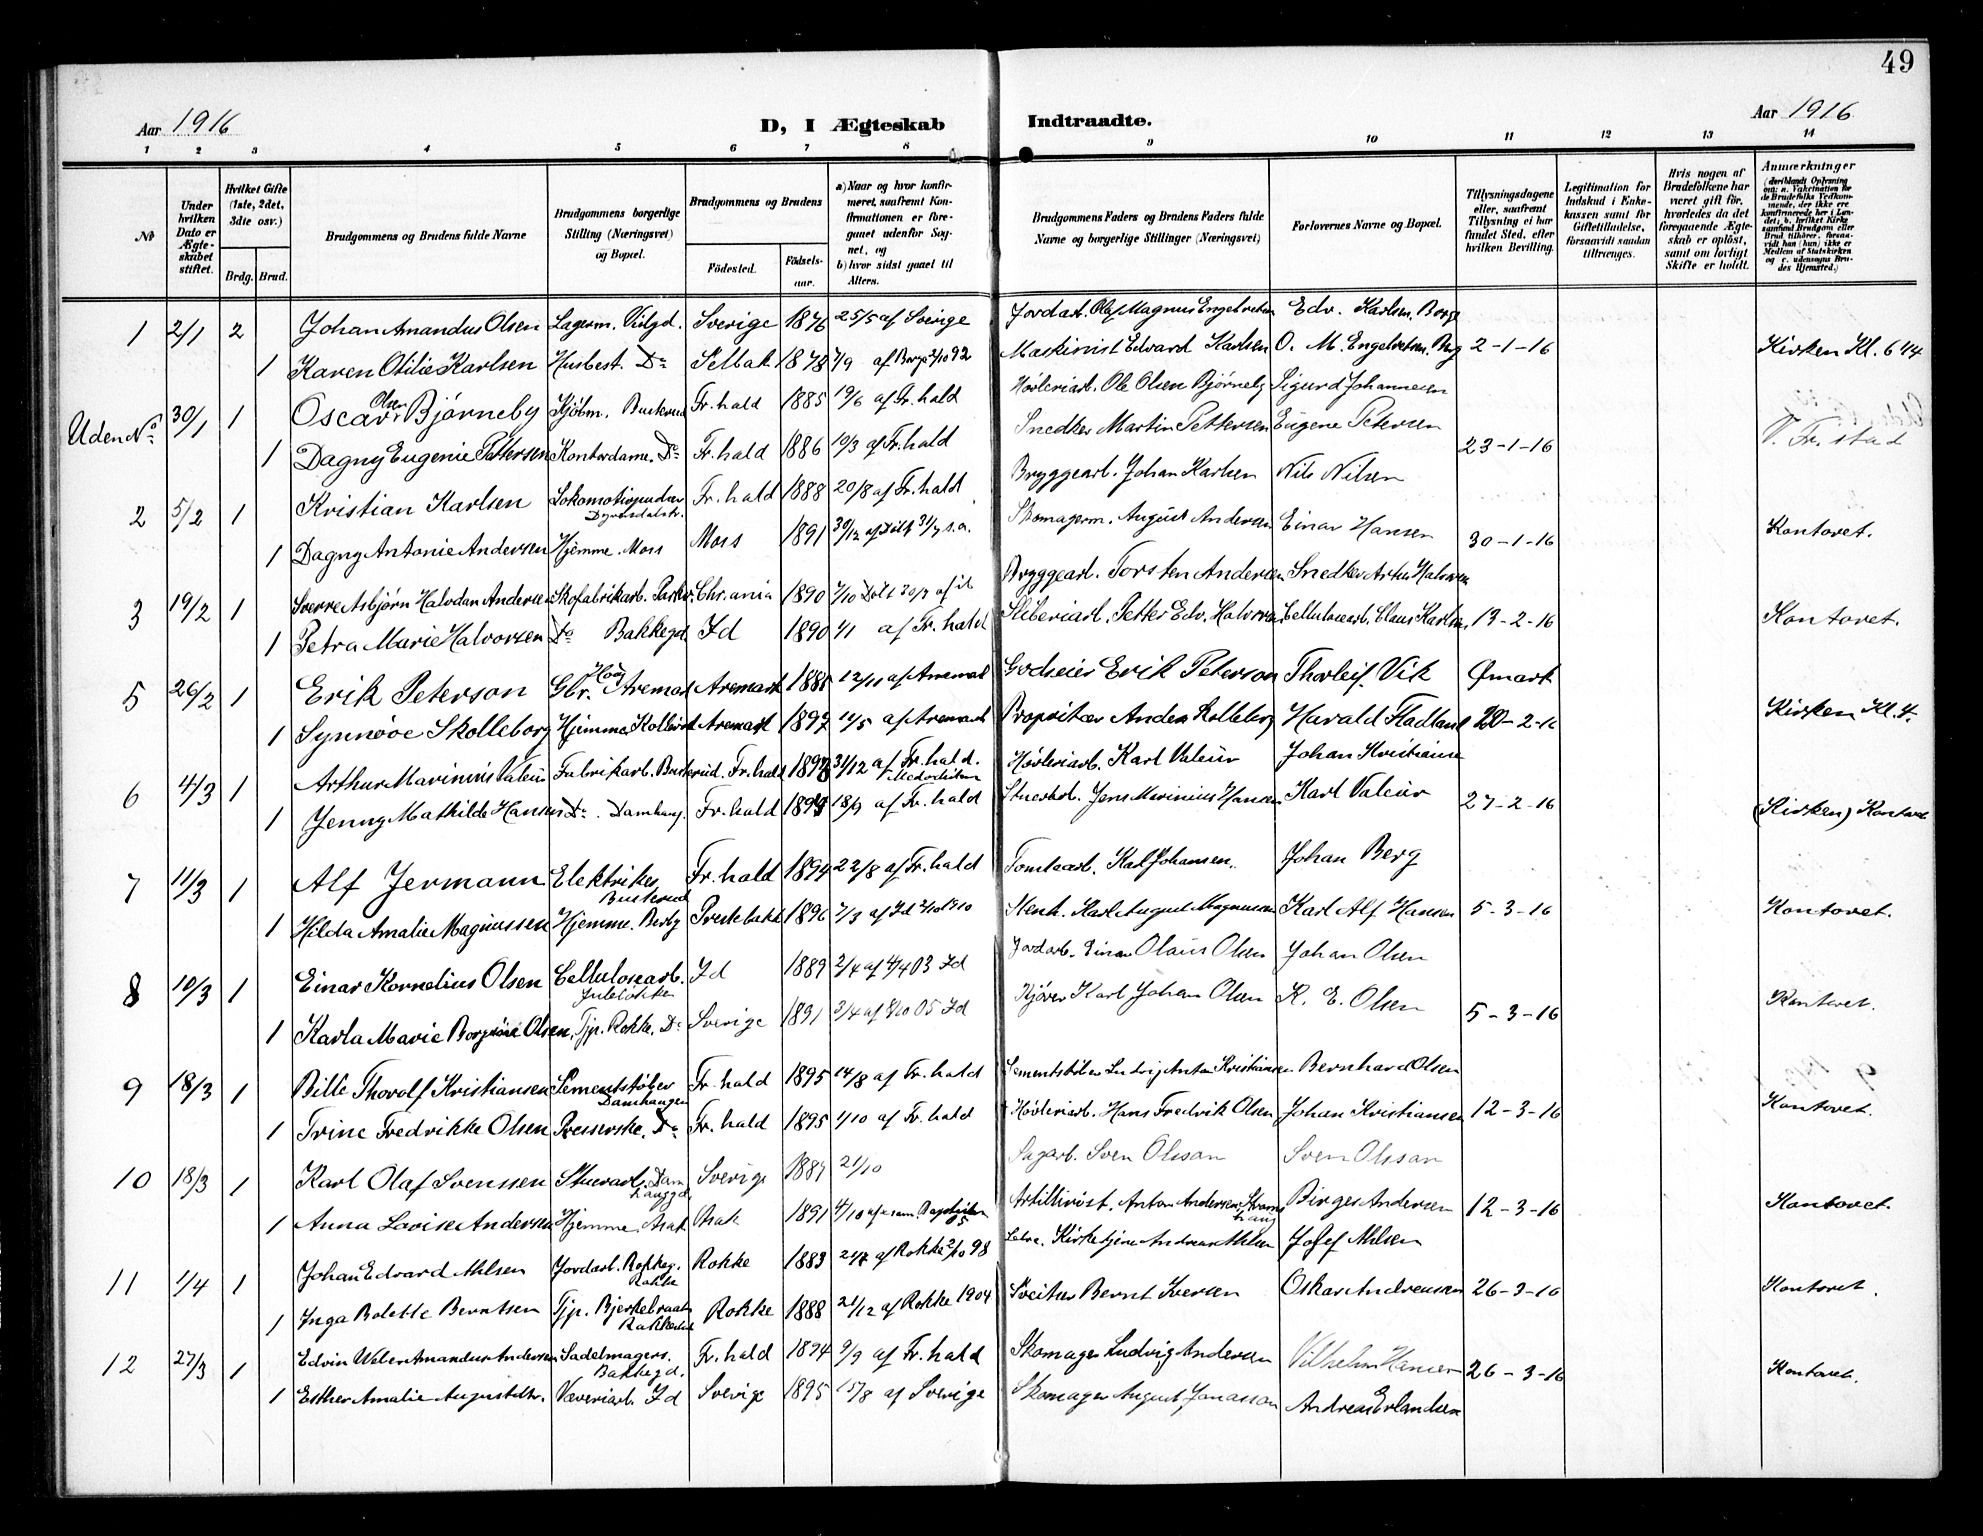 49
Aar 1916
D, I Ægteskab Indtraadte.
Aar 1916
1 2 3 4 5 6 7 8 9 10 11 12 13 14
№
Under hvilken Dato er Ægteskabet stiftet.
Hvilket Gifte (1ste, 2det, 3die osv.)
Brdg. Brud.
Brudgommens og Brudens fulde Navne
Brudgommens borgerlige Stilling (Næringsvei) og Bopæl.
Brudgommens og Brudens
Födested. Födselsaar.
a) Naar og hvor konfirmeret, saafremt Konfirmationen er foregaaet udenfor Sognet, og
b) hvor sidst gaaet til Alters.
Brudgommens Faders og Brudens Faders fulde Navne og borgerlige Stillinger (Næringsvei)
Forlovernes Navne og Bopæl.
Tillysningsdagene eller, saafremt Tillysning ei har fundet Sted, efter hvilken Bevilling.
Legitimation for Indskud i Enkekassen samt for Giftetilladelse, forsaavidt saadan tiltrænges.
Hvis nogen af Brudefolkene har været gift för, hvorledes da det foregaaende Ægteskab er oplöst, samt om lovligt Skifte er holdt.
Anmærkninger
1 2/1 2 Johan Amandus Olsen Lagerm. Sverige 1876 25/5 af Sverige Jordarb. Olaf Magnus Engebretsen Edv. Karlsen, Berge
1 Karen Otilie Karlsen Husbest. Do Selbak 1878 7/9 af Borge 2/10 92 Maskinist Edvard Karlsen O. M. Engebretsen Berg 2-1-16 Kirken Kl. 6
Uden No 30/1 1 Oscar Olsen Bjørneby Kjøbm. Buskerud Fr.hald 1885 19/6 af Fr.hald Høvleriarb. Ole Olsen Bjørneby Sigurd Johannesen
1 Dagny Eugenie Pettersen Kontordame. Do Fr.hald 1886 10/3 af Fr.hald Snedker Martin Pettersen Eugene Petersen 23-1-16 V. Fr.stad
2 5/2 1 Kristian Karlsen Fr.hald 1888 20/8 af Fr.hald Bryggearb. Johan Karlsen Nils Nilsen
1 Dagny Antonie Andersen Hjemme. Moss Moss 1891 Skomagerm. August Andersen Einar Hansen 30-1-16 Kontoret.
3 19/2 1 Sverre Asbjørn Halvdan Andersen Skofabrikarb. Chr.ania 1890 Bryggearb. Torsten Andersen Snedker
1 Petra Marie Halvorsen Do Bakkegd. Id 1890 4/1 af Fr.hald Sliberiarb. Petter Edv. Halvorsen Cellulosearb. Claus Karlsen, 13-2-16 Kontoret.
5 26/2 1 Erik Peterson Gbr. Aremark Aremark 1888 12/11 af Aremark Godseier Erik Peterson Thorleif Vik Ømark
1 Synnøve Skolleborg Hjemme. Aremark 1897 14/5 af Aremark Proprietær Anders Kolleborg Harald Fladland 20-2-16 Kirken Kl. 4.
6 4/3 1 Arthur Marinius Valeur Fabrikarb. Buskerud. Fr.hald 31/12 af Fr.hald. Høvleriarb. Karl Valeur Johan Kristiansen
1 Jenny Mathilde Hansen Do. Damhaug. Fr.hald 18/9 af Fr.hald Jens Marinius Hansen Karl Valeur 27-2-16 (Kirken) Kontoret
7 11/3 1 Alf Jermann Elektriker Buskerud Fr.hald 1894 22/8 af Fr.hald Tomtearb. Karl Johansen. Johan Berg
1 Hilda Amalie Magnussen Hjemme. Berby Prestebakke 1896 7/3 af Id 2/10 1910 Karl August Magnussen Karl Alf Hansen 5-3-16 Kontoret.
8 10/3 1 Einar Kornelius Olsen Cellulosearb. Juleløkken Id 1889 2/4 af 4/4 03 Id Jordarb. Einar Olaus Olsen Johan Olsen
1 Karla Marie Olsen, Tjp. Rokke. Do Sverige 1891 2/4 af 8/10 05 Id Kjører Karl Johan Olsen K. E. Olsen 5-3-16 Kontoret.
9 18/3 1 Bille Thorolf Kristiansen Sementstøber Damhaugen Fr.hald 1895 14/8 af Fr.hald Sementstøber Ludvig Anton Kristiansen Bernhard Olsen
1 Trine Fredrikke Olsen Presserske. Do Fr.hald 1895 4/10 af Fr.hald Høvleriarb. Hans Fredrik Olsen Johan Kristiansen 12-3-16 Kontoret.
10 18/3 1 Karl Olaf Svenssen Stuerarb. Damhauggd. Sverige 21/10 Sagarb. Sven Olssan Sven Olssan
1 Anna Lovise Andersen Hjemme. Asak Asak 1891 Artillirist. Anton Andersen Birger Andersen 12-3-16 Kontoret.
11 1/4 1 Johan Edvard Ahlsen Jordarb. Rokkeg. Rokke Rokke 1883 af Rokke 2/10 98 Kirketjener Andreas Ahlsen Josef Ahlsen
1 Inga Bolette Berntsen Tjp. Rokke 1888 21/12 af Rokke 1904 Sveitser Bernt Iversen Oskar Andreassen 26-3-16 Kontoret.
12 27/3 1 Edvin Weber Amandus Andersen Sadelmagers. Bakkegd. Fr.hald 1894 9/9 af Fr.hald Skomager Ludvig Andersen Vilhelm Hansen 26-3-16 Kontoret.
1 Esther Amalie Augustdtr. Væveriarb. Id Sverige 1895 15/8 af Sverige Skomager August Jonasson Andreas Erlandsen